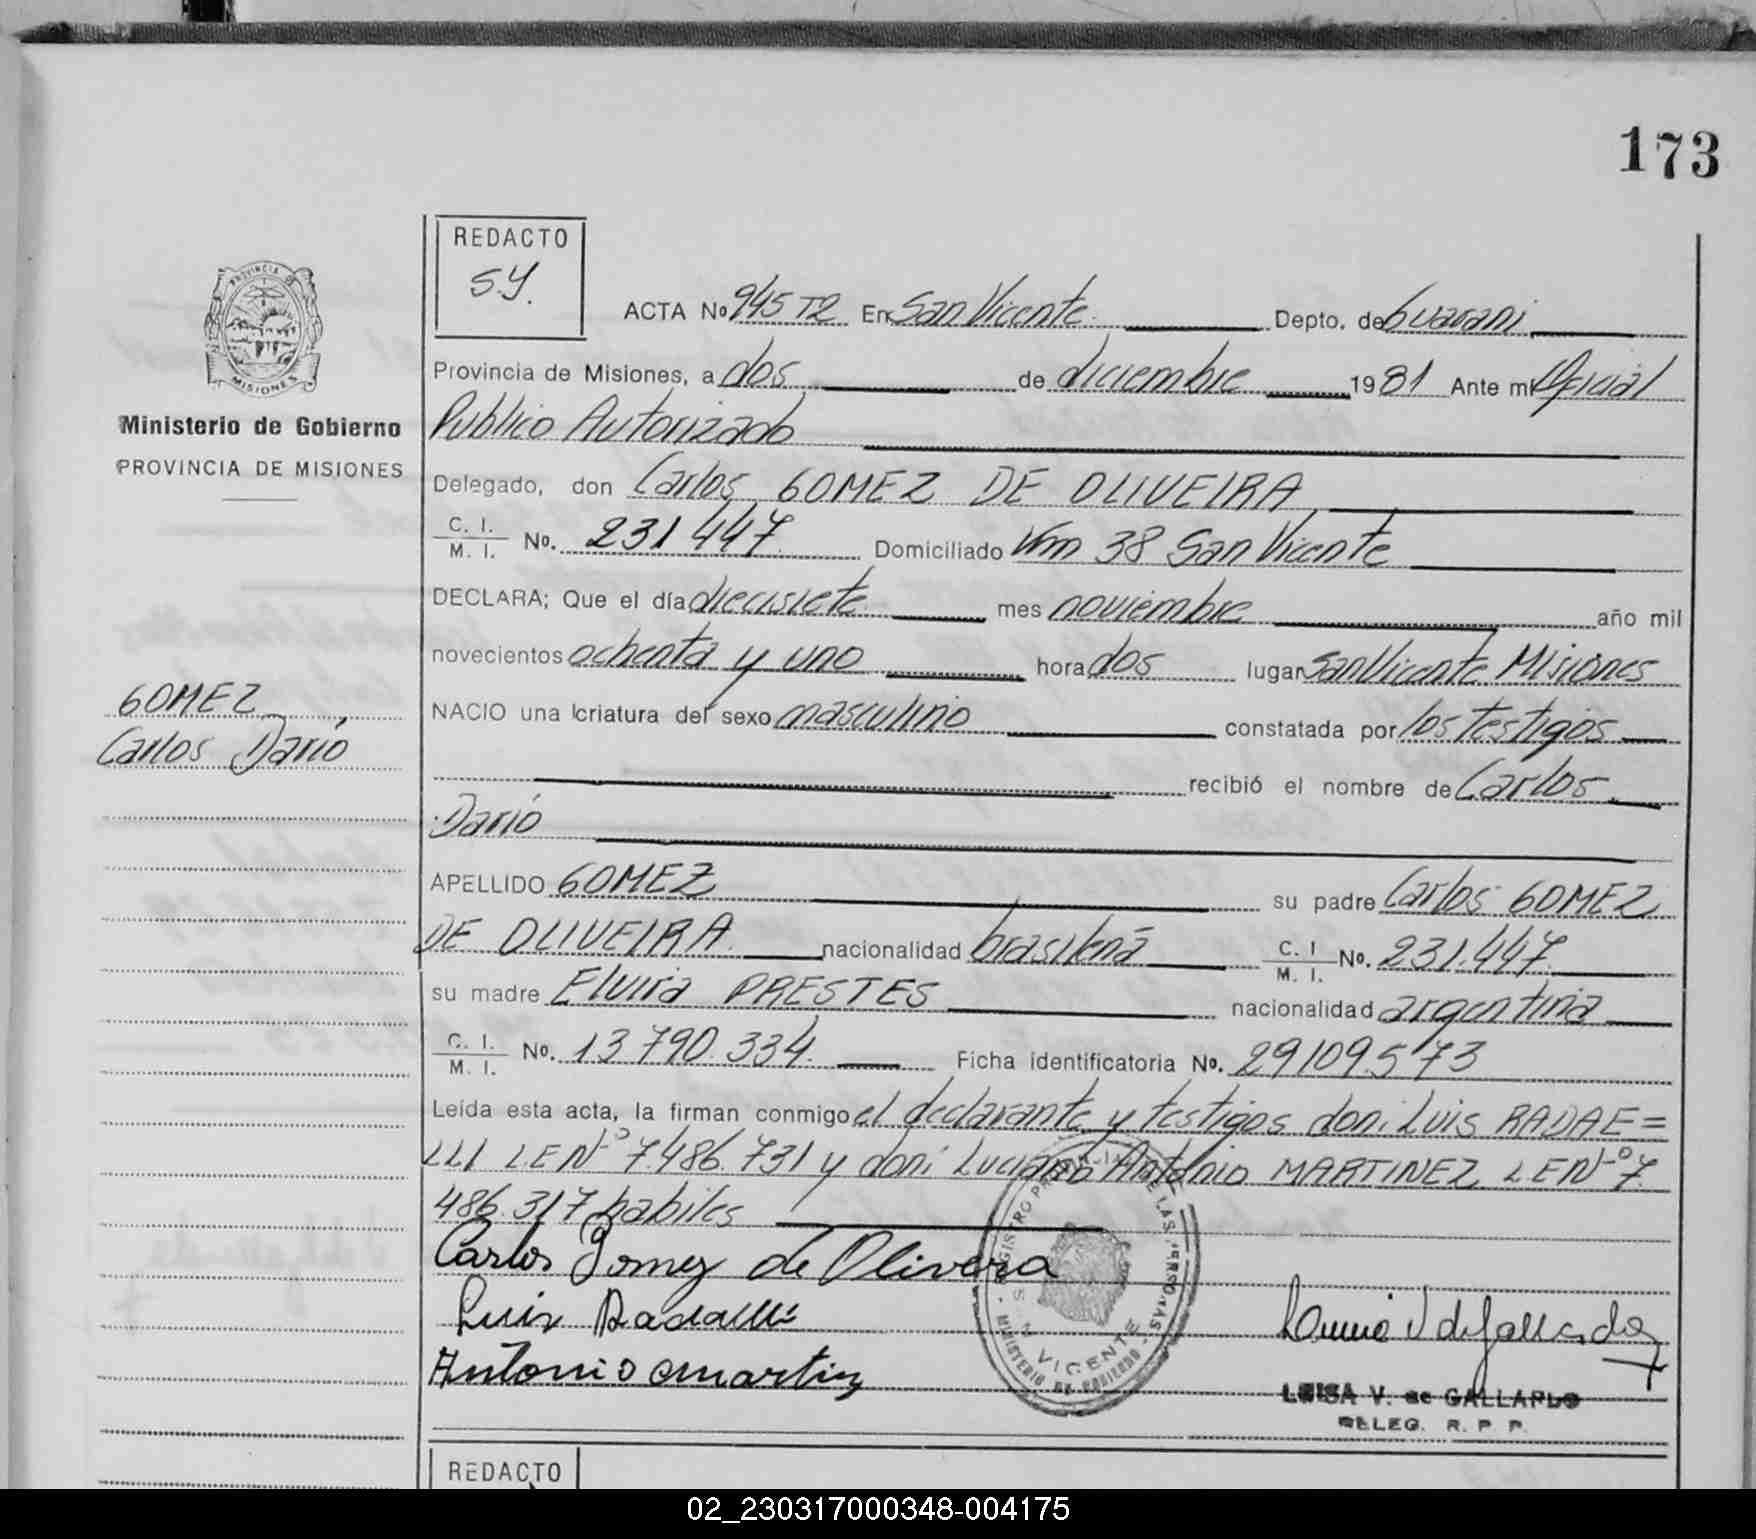 173
REDACTO
S.Y.
PROVINCIA DE
MISIONES
Ministerio de Gobierno
PROVINCIA DE MISIONES
ACTA No 945 T2 En San Vicente Depto. de Guarani
Provincia de Misiones, a dos de diciembre 1981 Ante mi Oficial
Publico Autorizado
Delegado, don Carlos GOMEZ DE OLIVEIRA
C. I. / M. I. No. 231 447 Domiciliado Km 38 San Vicente
DECLARA; Que el día diecisiete mes noviembre año mil
novecientos ochenta y uno hora dos lugar San Vicente Misiones
NACIO una criatura del sexo masculino constatada por los testigos
recibió el nombre de Carlos
Darío
GOMEZ
Carlos Darío
APELLIDO GOMEZ su padre Carlos GOMEZ
DE OLIVEIRA nacionalidad brasileña C. I / M. I. No. 231.447
su madre Elvira PRESTES nacionalidad argentina
C. I. / M. I. No. 13 790.334 Ficha identificatoria No. 29109573
Leída esta acta, la firman conmigo el declarante y testigos don: Luis RADAE=
LLI L.E Nº 7.486.731 y don: Luciano Antonio MARTINEZ L E Nº 7.
486.317 habiles
Carlos Gomez de Olivera
Luis Radaelli
Antonio Martinz
VICENTE
MINISTERIO DE GOBIERNO
LUISA V. de GALLARDO
DELEG. R. P. P.
REDACTO
02_230317000348-004175